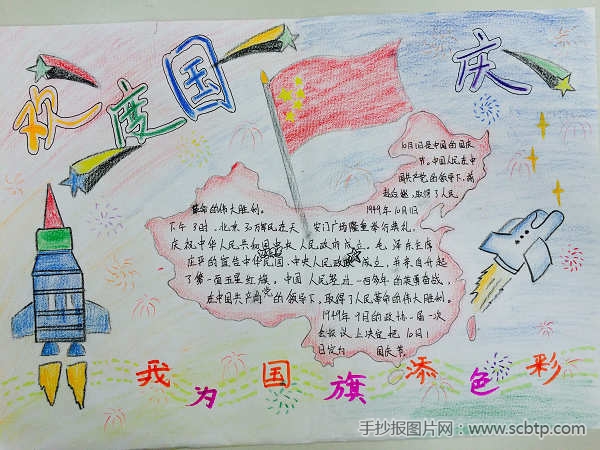 欢度国庆
10月1日是中国的国庆
节。中国人民在中
国共产党的领导下,前
赴后继,取得了人民
革命的伟大胜利。 1949年10月1日
下午3时,北京30万军民在天 安门广场隆重举行典礼,
庆祝中华人民共和国中央人民政府成立。毛泽东主席
庄严的宣告中华民国,中央人民政府成立,并亲自升起
了第一面五星红旗。中国人民经过一百余年的英勇奋战,
在中国共产党的领导下,取得了人民革命的伟大胜利。
1949年9月的政协一届一次
会议上决定把10月1
日定为 国庆节
我为国旗添色彩
手抄报图片网:www.scbtp.com